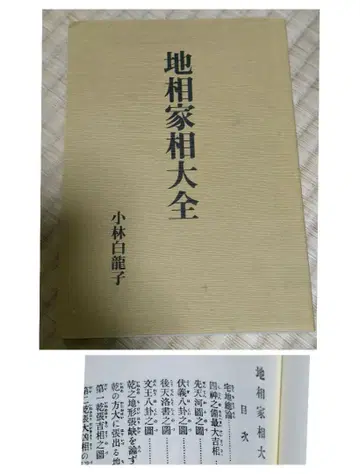 地相家相大全
小林白龍子
地相家相大
目次
宅地總論
四神之備最大吉相
先天河圖之圖
伏義八卦之圖
後天洛書之圖
文王八卦之圖
乾之地形張缺を論ず
乾の方大に張出る地
第一乾張吉相之圖
第二乾張大凶相の